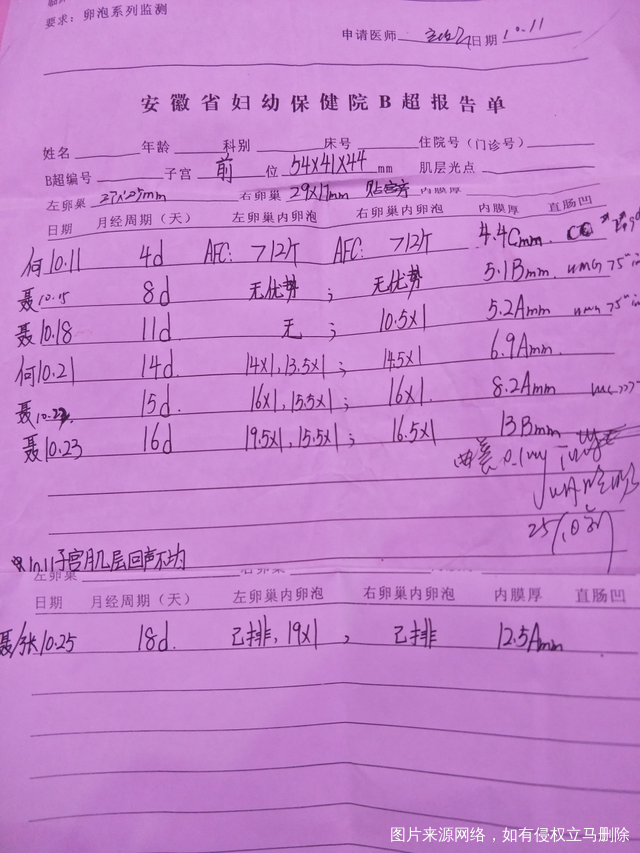 要求：卵泡系列监测
申请医师 日期 10.11
安徽省妇幼保健院B超报告单
姓名 年龄 科别 床号 住院号（门诊号）
B超编号 子宫 前 位 54×41×44 mm 肌层光点
左卵巢 27×25mm 右卵巢 29×17mm 贴宫旁 内膜厚
日期 月经周期（天） 左卵巢内卵泡 右卵巢内卵泡 内膜厚 直肠凹
何10.11 4d AFC: >12个 AFC: >12个 4.4Cmm.
聂10.15 8d 无优势 ; 无优势 5.1Bmm.
聂10.18 11d 无 ; 10.5×1 5.2Amm
何10.21 14d 14×1, 13.5×1 ; 14.5×1 6.9Amm.
聂 15d. 16×1, 15.5×1 ; 16×1. 8.2Amm
聂10.23 16d 19.5×1, 15.5×1 ; 16.5×1 13Bmm
0.1mg
*10.11子宫肌层回声不均
左卵巢
日期 月经周期（天） 左卵巢内卵泡 右卵巢内卵泡 内膜厚 直肠凹
聂/张10.25 18d. 已排, 19×1 , 已排 12.5Amm
图片来源网络，如有侵权立马删除